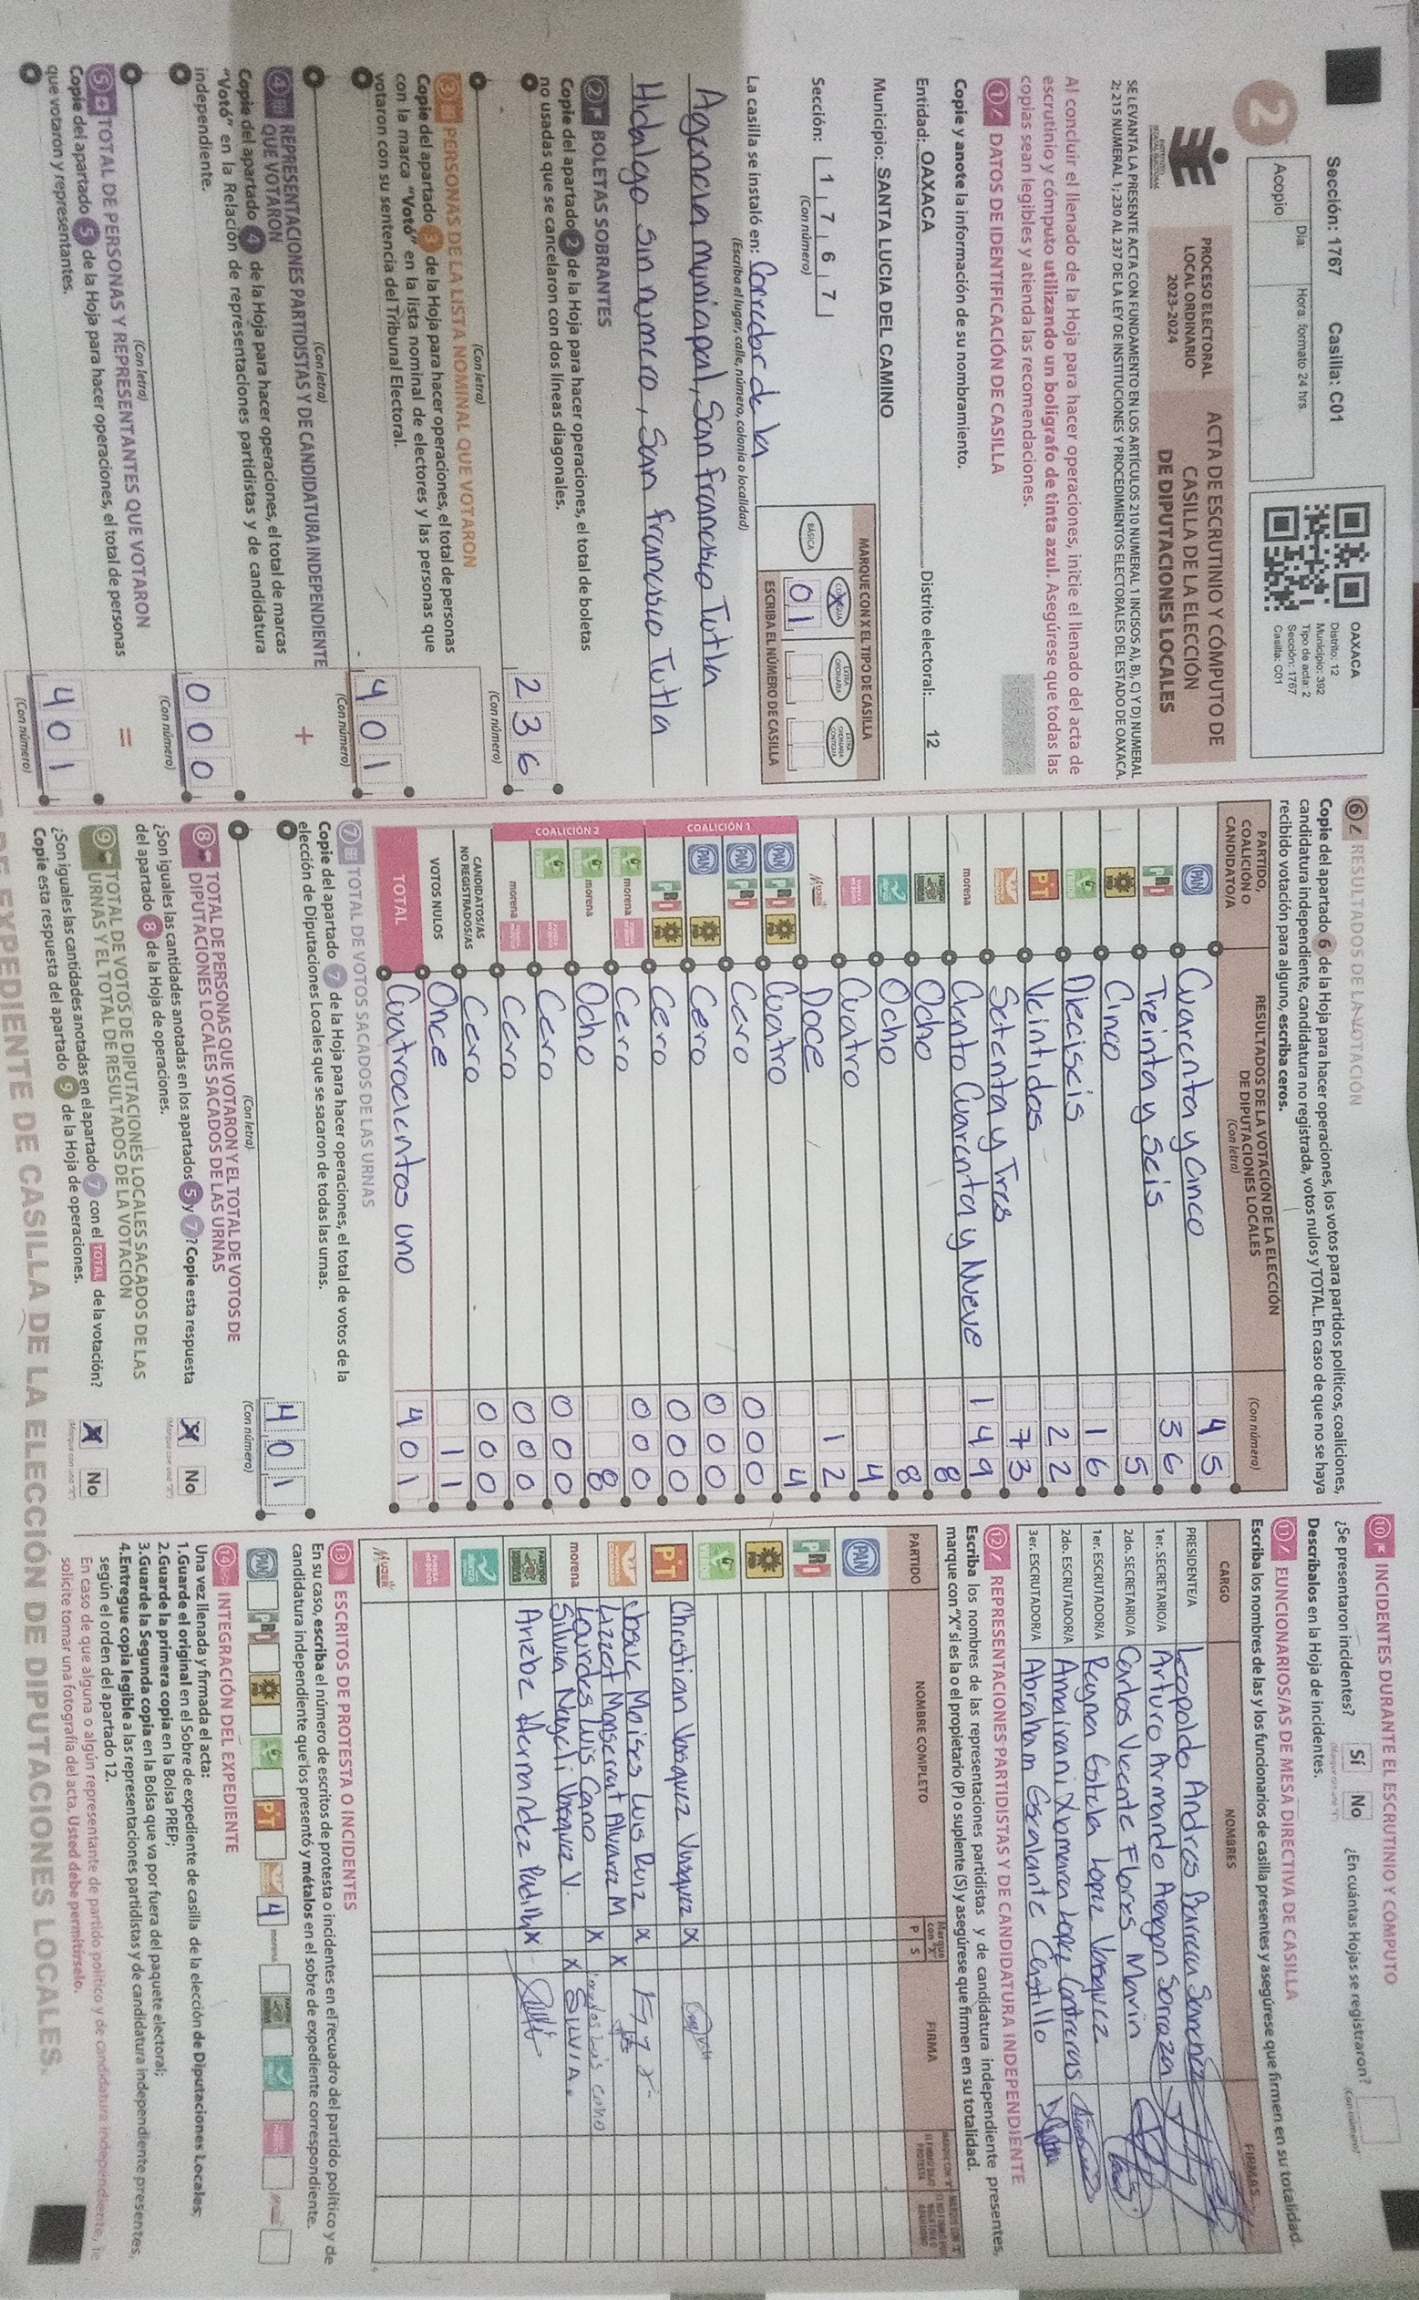 Sección: 1767 Casilla: C01
2
Acopio
Día: Hora: formato 24 hrs.
OAXACA
Distrito: 12
Municipio: 392
Tipo de acta: 2
Sección: 1767
Casilla: C01
PROCESO ELECTORAL
LOCAL ORDINARIO
2023-2024
ACTA DE ESCRUTINIO Y CÓMPUTO DE
CASILLA DE LA ELECCIÓN
DE DIPUTACIONES LOCALES
SE LEVANTA LA PRESENTE ACTA CON FUNDAMENTO EN LOS ARTÍCULOS 210 NUMERAL 1 INCISOS A), B), C) Y D) NUMERAL
2; 215 NUMERAL 1; 230 AL 237 DE LA LEY DE INSTITUCIONES Y PROCEDIMIENTOS ELECTORALES DEL ESTADO DE OAXACA.
Al concluir el llenado de la Hoja para hacer operaciones, inicie el llenado del acta de
escrutinio y cómputo utilizando un bolígrafo de tinta azul. Asegúrese que todas las
copias sean legibles y atienda las recomendaciones.
1 DATOS DE IDENTIFICACIÓN DE CASILLA
Copie y anote la información de su nombramiento.
Entidad: OAXACA Distrito electoral: 12
Municipio: SANTA LUCIA DEL CAMINO
Sección: 1 7 6 7
(Con número)
MARQUE CON X EL TIPO DE CASILLA
BÁSICA X
ESCRIBA EL NÚMERO DE CASILLA
01
La casilla se instaló en: Corredor de la
(Escriba el lugar, calle, número, colonia o localidad)
Agencia municipal, San Francisco Tutla
Hidalgo sin numero, San Francisco Tutla
2 BOLETAS SOBRANTES
Copie del apartado 2 de la Hoja para hacer operaciones, el total de boletas
no usadas que se cancelaron con dos líneas diagonales.
236
(Con letra) (Con número)
3 PERSONAS DE LA LISTA NOMINAL QUE VOTARON
Copie del apartado 3 de la Hoja para hacer operaciones, el total de personas
con la marca "Votó" en la lista nominal de electores y las personas que
votaron con su sentencia del Tribunal Electoral.
401
(Con letra) (Con número)
4 REPRESENTACIONES PARTIDISTAS Y DE CANDIDATURA INDEPENDIENTE
QUE VOTARON +
Copie del apartado 4 de la Hoja para hacer operaciones, el total de marcas
"Votó" en la Relación de representaciones partidistas y de candidatura
independiente.
000
(Con letra) (Con número)
5 TOTAL DE PERSONAS Y REPRESENTANTES QUE VOTARON =
Copie del apartado 5 de la Hoja para hacer operaciones, el total de personas
que votaron y representantes.
401
(Con número)
6 RESULTADOS DE LA VOTACIÓN
Copie del apartado 6 de la Hoja para hacer operaciones, los votos para partidos políticos, coaliciones,
candidatura independiente, candidatura no registrada, votos nulos y TOTAL. En caso de que no se haya
recibido votación para alguno, escriba ceros.
PARTIDO,
COALICIÓN O
CANDIDATO/A
RESULTADOS DE LA VOTACIÓN DE LA ELECCIÓN
DE DIPUTACIONES LOCALES
(Con letra)
(Con número)
PAN Cuarenta y cinco 45
PRI Treinta y seis 36
PRD Cinco 5
Dieciseis 16
PT Veintidos 22
Setenta y Tres 73
morena Ciento Cuarenta y Nueve 149
Ocho 8
Ocho 8
Cuatro 4
Mujer Doce 12
COALICIÓN 1
PAN PRI PRD Cuatro 4
PAN PRI Cero 000
PAN PRD Cero 000
PRI PRD Cero 000
COALICIÓN 2
morena Cero 000
morena Ocho 8
Cero 000
morena Cero 000
CANDIDATOS/AS
NO REGISTRADOS/AS Cero 000
VOTOS NULOS Once 11
TOTAL Cuatrocientos uno 401
7 TOTAL DE VOTOS SACADOS DE LAS URNAS
Copie del apartado 7 de la Hoja para hacer operaciones, el total de votos de la
elección de Diputaciones Locales que se sacaron de todas las urnas.
401
(Con letra) (Con número)
8 TOTAL DE PERSONAS QUE VOTARON Y EL TOTAL DE VOTOS DE
DIPUTACIONES LOCALES SACADOS DE LAS URNAS
¿Son iguales las cantidades anotadas en los apartados 5 y 7? Copie esta respuesta
del apartado 8 de la Hoja de operaciones.
X No
9 TOTAL DE VOTOS DE DIPUTACIONES LOCALES SACADOS DE LAS
URNAS Y EL TOTAL DE RESULTADOS DE LA VOTACIÓN
¿Son iguales las cantidades anotadas en el apartado 7 con el TOTAL de la votación?
Copie esta respuesta del apartado 9 de la Hoja de operaciones.
X No
10 INCIDENTES DURANTE EL ESCRUTINIO Y CÓMPUTO
¿Se presentaron incidentes? Sí No ¿En cuántas Hojas se registraron?
(Con número)
Descríbalos en la Hoja de incidentes.
11 FUNCIONARIOS/AS DE MESA DIRECTIVA DE CASILLA
Escriba los nombres de las y los funcionarios de casilla presentes y asegúrese que firmen en su totalidad.
CARGO NOMBRES FIRMAS
PRESIDENTE/A Leopoldo Andres Barreau Sanchez
1er. SECRETARIO/A Arturo Armando Aragon Sorroza
2do. SECRETARIO/A Carlos Vicente Flores Marin
1er. ESCRUTADOR/A Reyna Estela Lopez Vasquez
2do. ESCRUTADOR/A Amairani Xiomaran Lopez Contreras
3er. ESCRUTADOR/A Abraham Escalante Castillo
12 REPRESENTACIONES PARTIDISTAS Y DE CANDIDATURA INDEPENDIENTE
Escriba los nombres de las representaciones partidistas y de candidatura independiente presentes,
marque con "X" si es la o el propietario (P) o suplente (S) y asegúrese que firmen en su totalidad.
PARTIDO NOMBRE COMPLETO Marque con "X" P S FIRMA
PAN
PRI
PRD
PT Christian Vasquez Vasquez X
Josue Moises Luis Ruiz X
Lizzet Monserrat Alvarez M X
morena Lourdes Luis Cano X Lourdes Luis Cano
Silvia Nayeli Vasquez V. X SILVIA.
Arizbe Hernandez Padilla X
Mujer
13 ESCRITOS DE PROTESTA O INCIDENTES
En su caso, escriba el número de escritos de protesta o incidentes en el recuadro del partido político y de
candidatura independiente que los presentó y métalos en el sobre de expediente correspondiente.
PAN PRI PRD PT 4 morena
14 INTEGRACIÓN DEL EXPEDIENTE
Una vez llenada y firmada el acta:
1.Guarde el original en el Sobre de expediente de casilla de la elección de Diputaciones Locales;
2.Guarde la primera copia en la Bolsa PREP;
3.Guarde la Segunda copia en la Bolsa que va por fuera del paquete electoral;
4.Entregue copia legible a las representaciones partidistas y de candidatura independiente presentes,
según el orden del apartado 12.
En caso de que alguna o algún representante de partido político y de candidatura independiente, le
solicite tomar una fotografía del acta, Usted debe permitírselo.
DE EXPEDIENTE DE CASILLA DE LA ELECCIÓN DE DIPUTACIONES LOCALES.